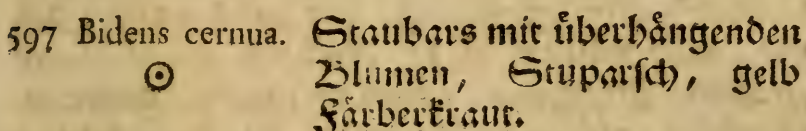 597 Bidens cernua. Staubars mit überhängenden
☉ Blumen, Stuparsch, gelb
Färberkraut.